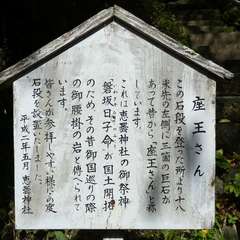 座王さん
この石段を登った所より十八
米先の左側に三箇の巨石が
あって昔から「座王さん」と称
しています。
これは恵曇神社の御祭神
磐坂日子命が国土開拓
のため、その昔御国巡りの際
の御腰掛の岩と傳へられて
います。
皆さんが参拝しやすい様この度
石段を設置いたしました。
平成二年五月 恵曇神社